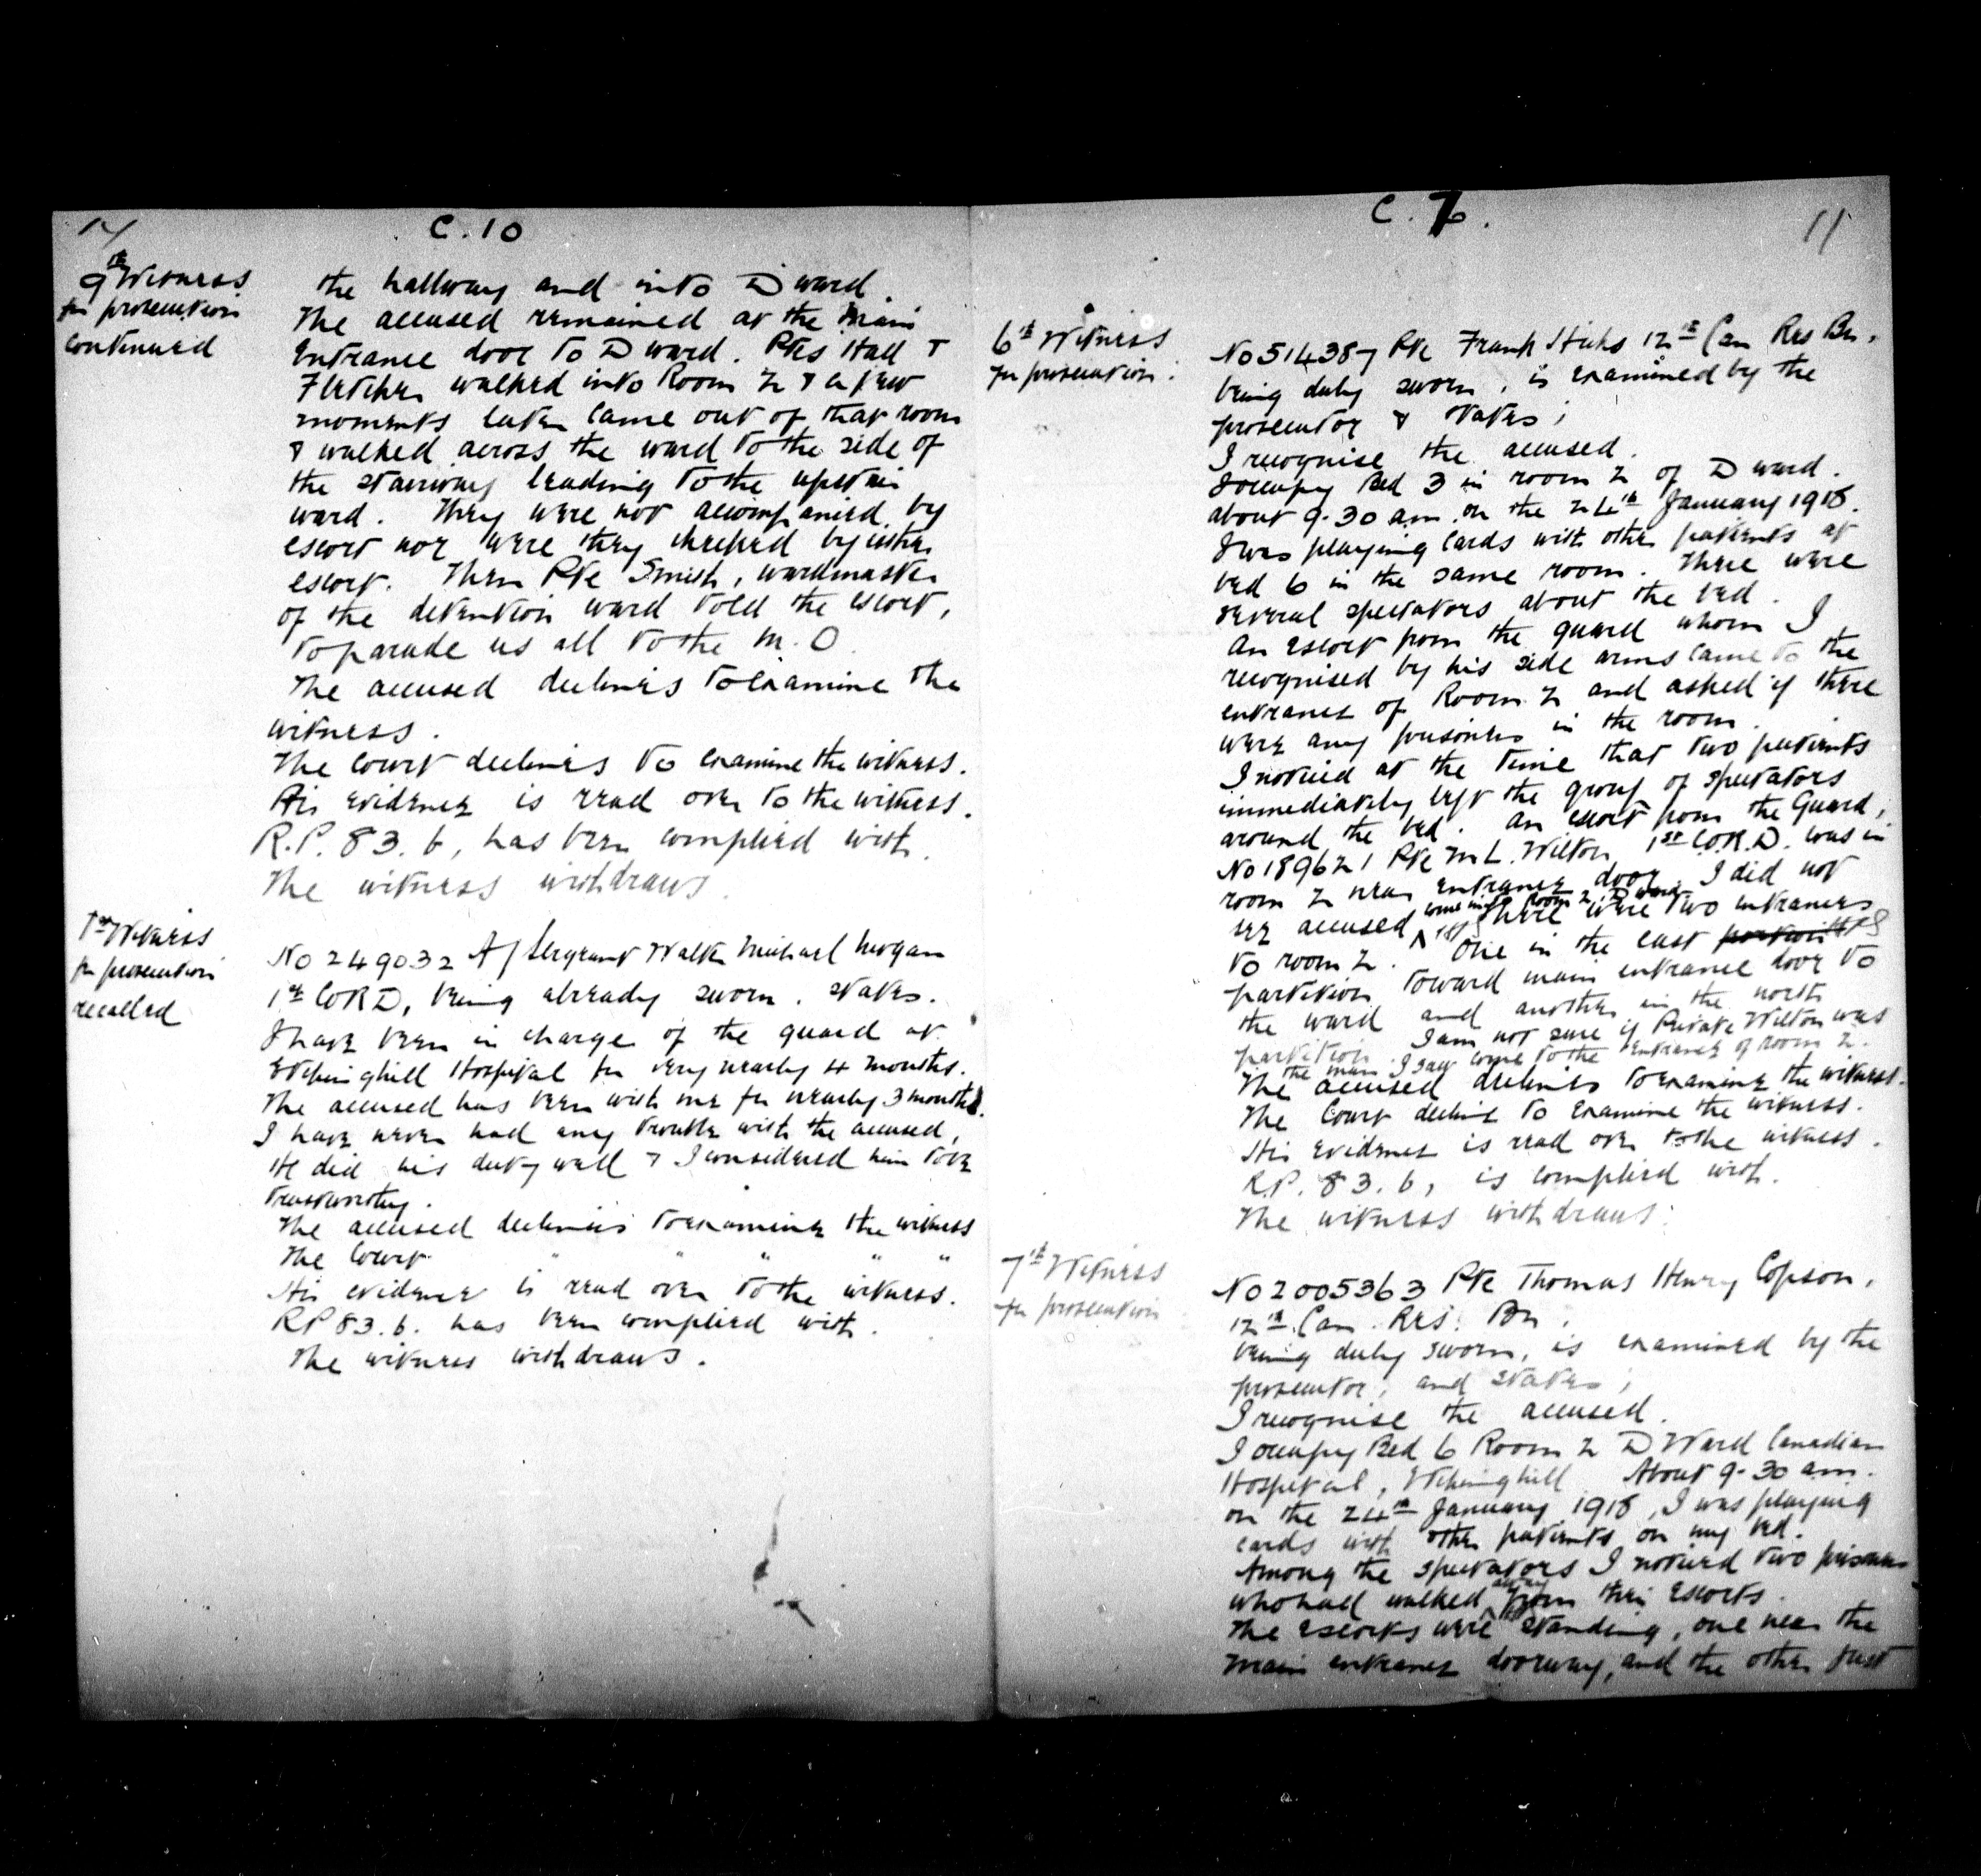 14
C.10
9th Witness
for prosecution
continued
the hallway and into D ward.
The accused remained at the main
Entrance door to D ward. Ptes Hall &
Fletcher walked into Room 2 & a few
moments later came out of that room
& walked across the ward to the side of
the stairway leading to the upstair
ward. They were not accompanied by
escort nor were they checked by either
escort. Then Pte Smith, wardmaster
of the detention ward told the escort,
to parade us all to the M.O.
The accused declines to examine the
witness.
The Court declines to examine the witness.
His evidence is read over to the witness.
R.P. 83. b, has been complied with.
The witness withdraws.
1st Witness
for prosecution
recalled
No 249032 A/Sergeant Walter Michael Morgan
1st CORD, being already sworn. states.
I have been in charge of the guard at
Etchinghill Hospital for very nearly 4 months.
The accused has been with me for nearly 3 months.
I have never had any trouble with the accused,
He did his duty well & I considered him to be
trustworthy.
The accused declines to examine the witness
The Court " " " " "
His evidence is read over to the witness.
RP 83. b. has been complied with.
The witness withdraws.
C. 7.
11
6th Witness
for prosecution.
No 514387 Pte Frank Hicks 12th Can Res Bn.
being duly sworn, is examined by the
prosecutor & states;
I recognise the accused.
I occupy Bed 3 in room 2 of D ward.
about 9-30 am. on the 24th January 1918.
I was playing cards with other patients at
bed 6 in the same room. There were
several spectators about the bed.
An escort from the guard whom I
recognised by his side arms came to the
entrance of Room 2 and asked if there
were any prisoners in the room.
I noticed at the time that two patients
immediately left the group of spectators
around the bed. An escort from the Guard,
No 189621 Pte M L. Wilton 1st C.O.R.D. was in
room 2 near entrance door. I did not
see accused come into Room 2, D ward. There were two entrances
to room 2. One in the east
partition toward main entrance door to
the ward and another in the north
partition. I am not sure if Private Wilton was
the man I saw come to the entrance of room 2.
The accused declines to examine the witness.
The Court decline to examine the witness.
His evidence is read over to the witness.
R.P. 83. b, is complied with.
The witness withdraws.
7th Witness
for prosecution
No 2005363 Pte Thomas Henry Copson.
12th. Can. Res. Bn.
being duly sworn, is examined by the
prosecutor, and states;
I recognise the accused.
I occupy Bed 6 Room 2 D Ward Canadian
Hospital, Etchinghill About 9-30 am.
on the 24th January 1918, I was playing
cards with other patients on my bed.
Among the spectators I noticed two prisoners
who had walked away from their escorts.
The escorts were standing, one near the
main entrance doorway, and the other just